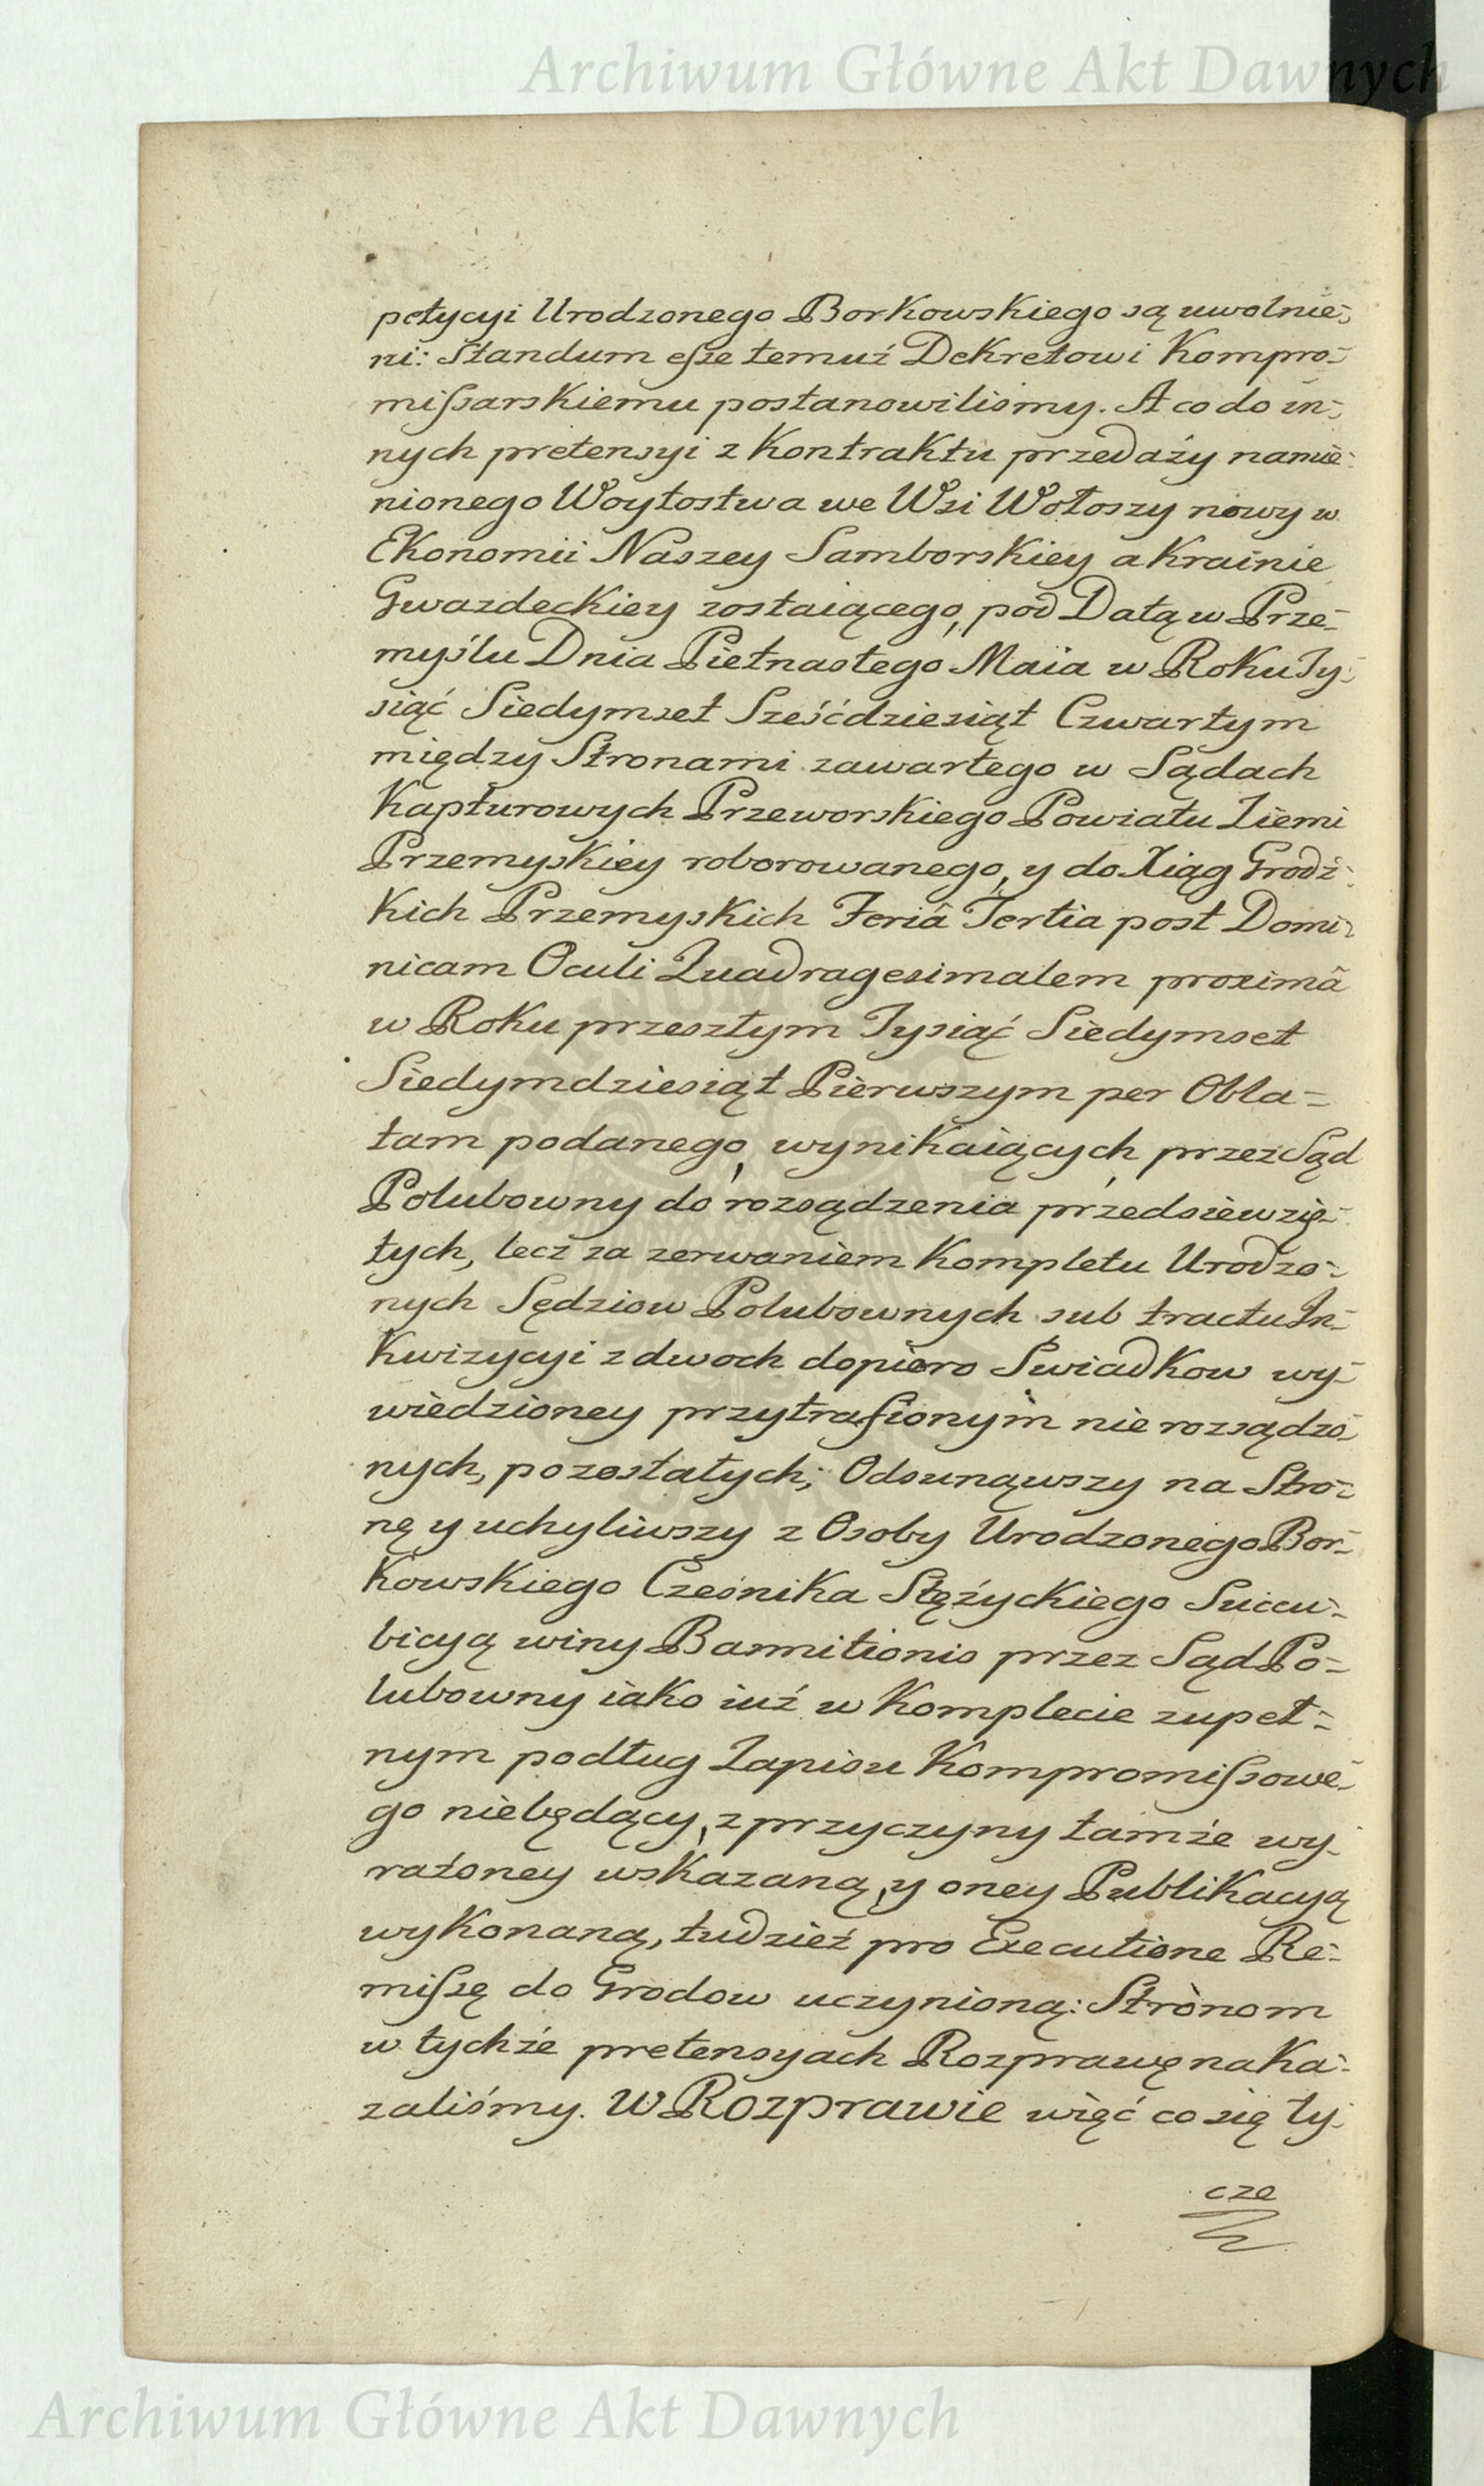 Archiwum Główne Akt Dawnych
petycyi Urodzonego Borkowskiego są uwolnie-
ni: Standum eſse temuż Dekretowi Kompro-
miſsarskiemu postanowilismy. A co do in-
nych pretensyi z Kontraktu przedaży namie-
nionego Woytostwa we Wsi Wołoszy nowy w
Ekonomii Naszey Samborskiey a Krainie
Gwazdeckiey zostaiącego, pod Datą w Prze-
myślu Dnia Pietnastego Maia w Roku Ty-
siąć Siedymset Sześćdziesiąt Czwartym
między Stronami zawartego w Sądach
Kapturowych Przeworskiego Powiatu Ziemi
Przemyskiey roborowanego, y do Xiąg Grodz-
kich Przemyskich Feriâ Tertia post Domi-
nicam Oculi Quadragesimalem proximâ
w Roku przeszłym Tysiąć Siedymset
Siedymdziesiąt Pierwszym per Obla-
tam podanego, wynikaiących, przez Sąd
Polubowny do rozsądzenia przedsiewzię-
tych, lecz za zerwaniem Kompletu Urodzo-
nych Sędziow Polubownych sub tractu In-
kwizycyi z dwoch dopiero Swiadkow wy-
wiedzioney przytrafionym nie rozsądzo-
nych, pozostałych; Odsunąwszy na Stro-
nę y uchyliwszy z Osoby Urodzonego Bor-
kowskiego Cześnika Stężyckiego Succu-
bicyą winy Bannitionis przez Sąd Po-
lubowny iako iuż w Komplecie zupeł-
nym podług Zapisu Kompromiſsowe-
go niebędący, z przyczyny tamże wy-
rażoney wskazaną, y oney Publikacyą
wykonaną, tudzież pro Executione Re-
miſsę do Grodow uczynioną: Stronom
w tychże pretensyach Rozprawę naka-
zaliśmy. W Rozprawie więć co się ty-
cze
Archiwum Główne Akt Dawnych